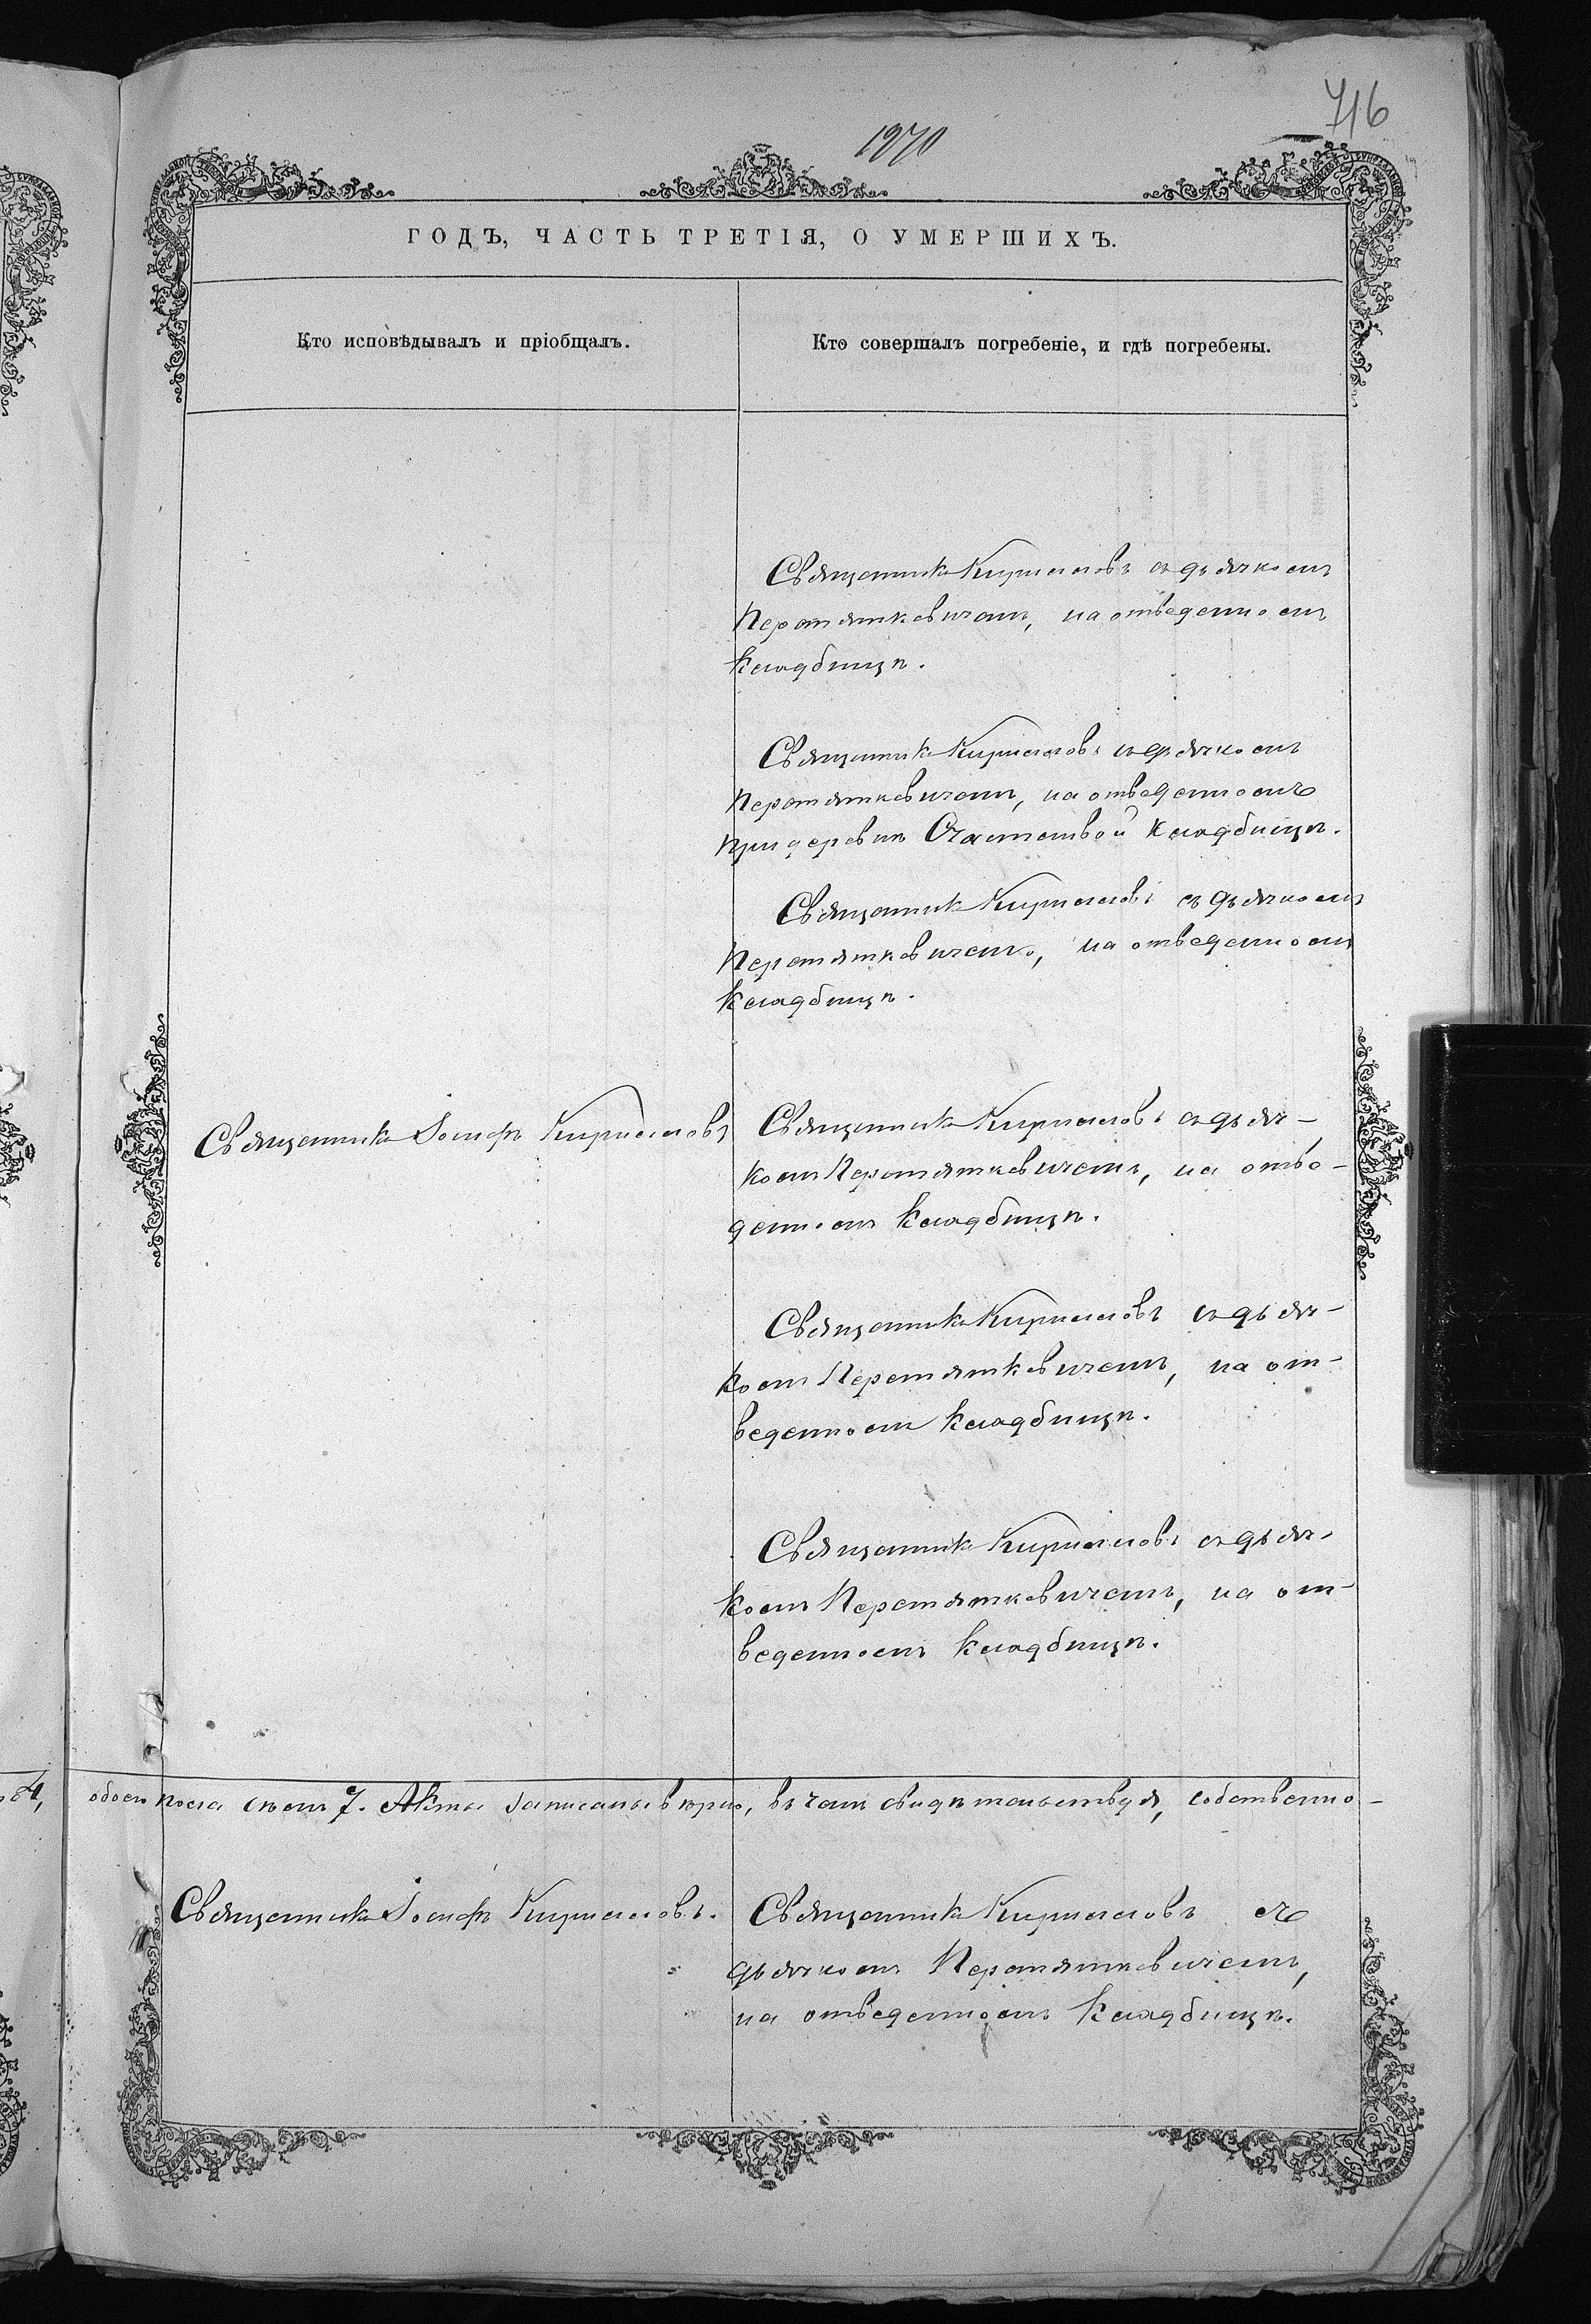 716
1870
ГОДЪ, ЧАСТЬ ТРЕТІЯ, О УМЕРШИХЪ.
Кто исповѣдывалъ и пріобщалъ.
Кто совершалъ погребеніе, и гдѣ погребены.
Священникъ Кириловъ съ дьячкомъ
Перетятковичемъ, на отведенномъ
кладбищѣ.
Священникъ Кириловъ съ дьячкомъ
Перетятковичемъ, на отведенномъ
при деревнѣ Счастливой кладбищѣ.
Священникъ Кириловъ съ дьячкомъ
Перетятковичемъ, на отведенномъ
кладбищѣ.
Священникъ Іосифъ Кириловъ
Священникъ Кириловъ съ дьяч-
комъ Перетятковичемъ, на отве-
денномъ кладбищѣ.
Священникъ Кириловъ съ дьяч-
комъ Перетятковичемъ, на от-
веденномъ кладбищѣ.
Священникъ Кириловъ съ дьяч-
комъ Перетятковичемъ, на от-
веденномъ кладбищѣ.
обоего пола 7. Акты записаны вѣрно, въ чемъ свидѣтельствуя, собственно-
Священникъ Іосифъ Кириловъ.
Священникъ Кириловъ съ
дьячкомъ Перетятковичемъ,
на отведенномъ кладбищѣ.